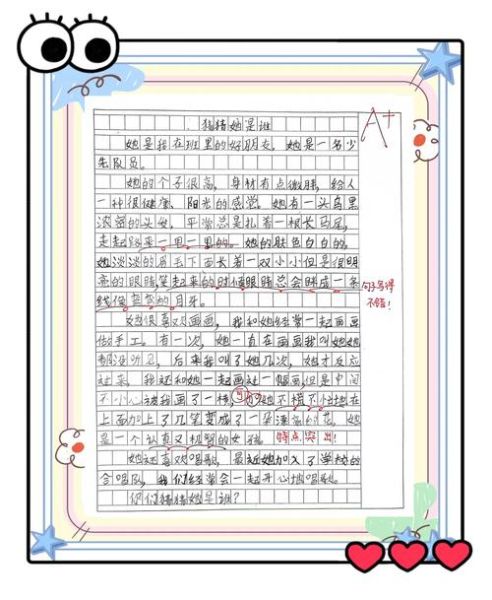 猜猜她是谁
A+
她是我在班里的好朋友，她是一名少
先队员。
她的个子很高，身材有点微胖，给人
一种很健康、阳光的感觉。她有一头乌黑
浓密的头发，平常总是扎着一根长马尾，
走起路来一甩一甩的。她的肤色白白的，
她淡淡的眉毛下面长着一双小小但是很明
亮的眼睛，笑起来的时候眼睛总会眯成一条
线像弯弯的月牙。
句子写得
不错！
她很喜欢画画，我和她经常一起画画
做手工。有一次，她一直在画画我叫她她
都没听见，后来我叫了她几次，她才反应
过来，我还和她一起画过一幅画，但是中间
不小心被我画了一横，她不慌不忙地在
上面加上了几笔变成了一朵漂亮的花，她
是一个认真又机智的女孩。
特点突出！
她还喜欢唱歌，最近她加入了学校的
合唱队，我们经常会一起开心地唱歌。
你们猜猜她是谁？